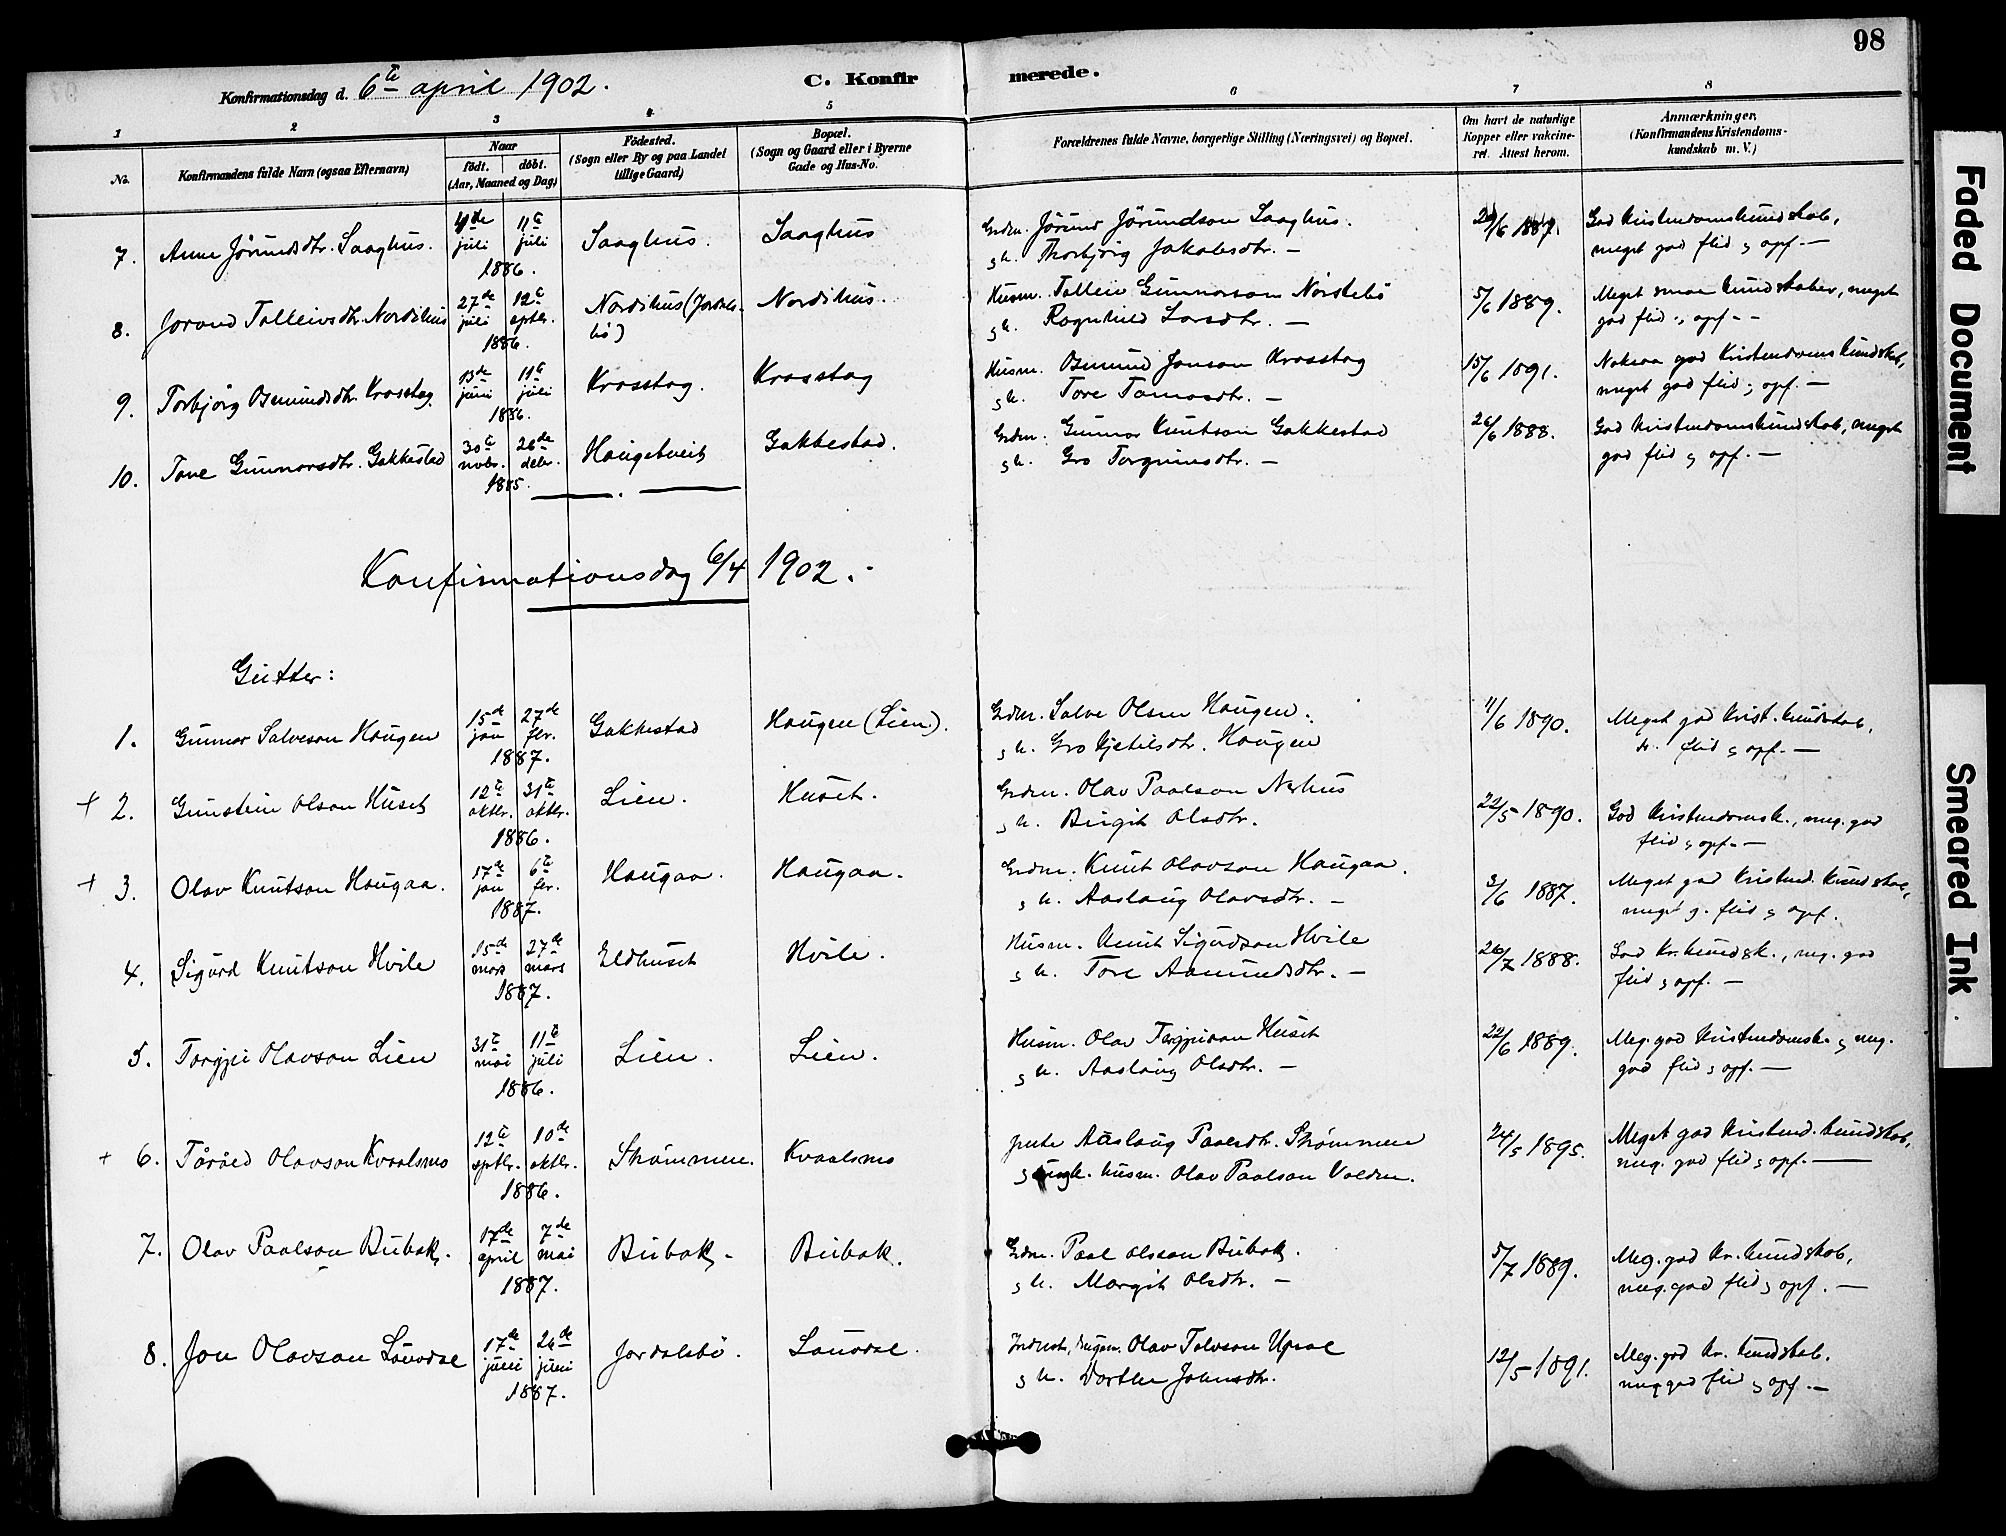 98
Konfirmationsdag d. 6te april 1902.
C. Konfirmerede.
1 2 3 4 5 6 7 8
No.
Konfirmandens fulde Navn (ogsaa Efternavn)
Naar
födt. döbt.
(Aar, Maaned og Dag)
Födested.
(Sogn eller By og paa Landet
tillige Gaard)
Bopæl.
(Sogn og Gaard eller i Byerne
Gade og Hus-No.
Forældrenes fulde Navne, borgerlige Stilling (Næringsvei) og Bopæl.
Om havt de naturlige
Kopper eller vakcine-
ret. Attest herom.
Anmærkninger,
(Konfirmandens Kristendoms-
kundskab m. V.)
7. Anne Jörundsdtr. Saaghus. juli 11te juli 1886. Saaghus. Saaghus Grdm. Jörund Jörundson Saaghus. /6 1887. God Kristendomskundskab,
g h. Thorbjörg Jakobsdtr. — meget god flid og opf. —
8. Jorand Tolleivsdtr. Nordihus 27de juli 12te sptbr. 1886. Nordihus (Jordals-
bö) Nordihus. Husm. Tolleiv Gunnarson Norstebö 5/6 1889. Meget smaa kundskaber, meget
g h. Ragnhild Larsdtr. — god flid og opf. —
9. Torbjörg Osmundsdtr. Krosstog. 13de juni 11te juli 1886. Krosstog. Krosstog Husm. Osmund Jonson Krosstog 15/6 1891. Noksaa god Kristendomskundskab,
g h. Tore Tomasdtr. — meget god flid og opf. —
10. Tone Gunnarsdtr. Gakkestad 30te novbr. 26de debr. 1885. Haugetveit Gakkestad. Grdm. Gunnar Knutson Gakkestad 26/6 1888. God Kristendomskundskab, meget
g h. Gro Torgrimsdtr. — god flid og opf. —
Konfirmationsdag 6/4 1902.
Gutter:
1. Gunnar Salveson Haugen 15de jan 27de fbr. 1887. Gakkestad Haugen (Lien). Grdm. Salve Olsen Haugen. 11/6 1890. Meget god Krist. kundskab,
g h. Gro Kjetilsdtr. Haugen do. flid og opf. —
+ 2. Gunstein Olson Huset 12te oktbr. 31te oktbr. 1886. Lien. Huset. Grdm. Olav Paalson Nerhus 22/5 1890. God Kristendomsk., meg. god
g h. Birgit Olsdtr. flid og opf. —
+ 3. Olav Knutson Haugaa. 17de jan 6te fbr. 1887. Haugaa. Haugaa. Grdm. Knut Olavson Haugaa. 3/6 1887. Meget god Kristend. kundskab,
g h. Aaslaug Olavsdtr. — meget g. flid og opf.
4. Sigurd Knutson Hvile 15de mars 27de mars 1887. Eldhuset Hvile. Husm. Knut Sigurdson Hvile 26/7 1888. God Kr. kundsk., meg. god
g h. Tore Aamundsdtr. — flid og opf. —
5. Torgjei Olavson Lien 31te mai 11te juli 1886. Lien. Lien. Husm. Olav Torgjeison Huset 22/6 1889. Meg. god Kristendomsk. og meg.
g h. Aaslaug Olsdtr. — god flid og opf. —
+ 6. Tåråld Olavson Kvaalsmo 12te sptbr. 10de oktbr. 1886. Strömmen. Kvaalsmo pente Aaslaug Paalsdtr. Strömmen 24/5 1895. Meget god Kristend. kundskab,
g ungk. husm. Olav Paalson Valden. meg. god flid og opf. —
7. Olav Paalson Bubak. 17de april 7de mai 1887. Bubak. Bubak. Grdm. Paal Olsson Bubak. 5/7 1889. Meg. god Kr. kundskab,
g h. Margit Olsdtr. — meg. god flid og opf. —
8. Jon Olavson Lauvdal 17de juni 26de juni 1887. Jordalsbö. Lauvdal. Olav Talvson Upsal 12/5 1891. Meg. god Kr. kundskab.
g h. Dorthe Johnsdtr. meg god flid og opf. —
Faded Document
Smeared Ink.